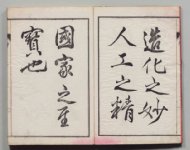 造化之妙
人工之精
國家之至
寳也